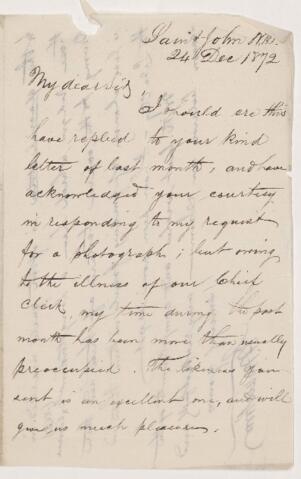 Saint John N.B.
24 Dec 1872
My dear Sir,
I would ere this
have replied to your kind
letter of last month, and have
acknowledged your courtesy
in responding to my request
for a photograph; but owing
to the illness of our Chief
Clerk, my time during the past
month has been more than usually
preoccupied. The likeness you
sent is an excellent one, and will
give us much pleasure.